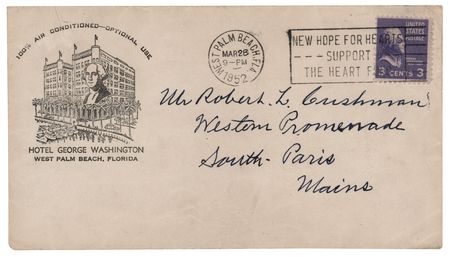 100% AIR CONDITIONED—OPTIONAL USE
HOTEL GEORGE WASHINGTON
WEST PALM BEACH, FLORIDA
WEST PALM BEACH, FLA.
MAR 28
9-PM
1952
NEW HOPE FOR HEARTS
SUPPORT
THE HEART F
UNITED STATES
3 CENTS 3
Mr Robert L. Cushman
Western Promenade
South Paris
Maine